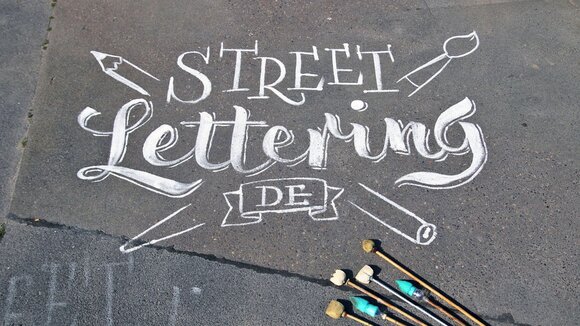 STREET
Lettering
DE